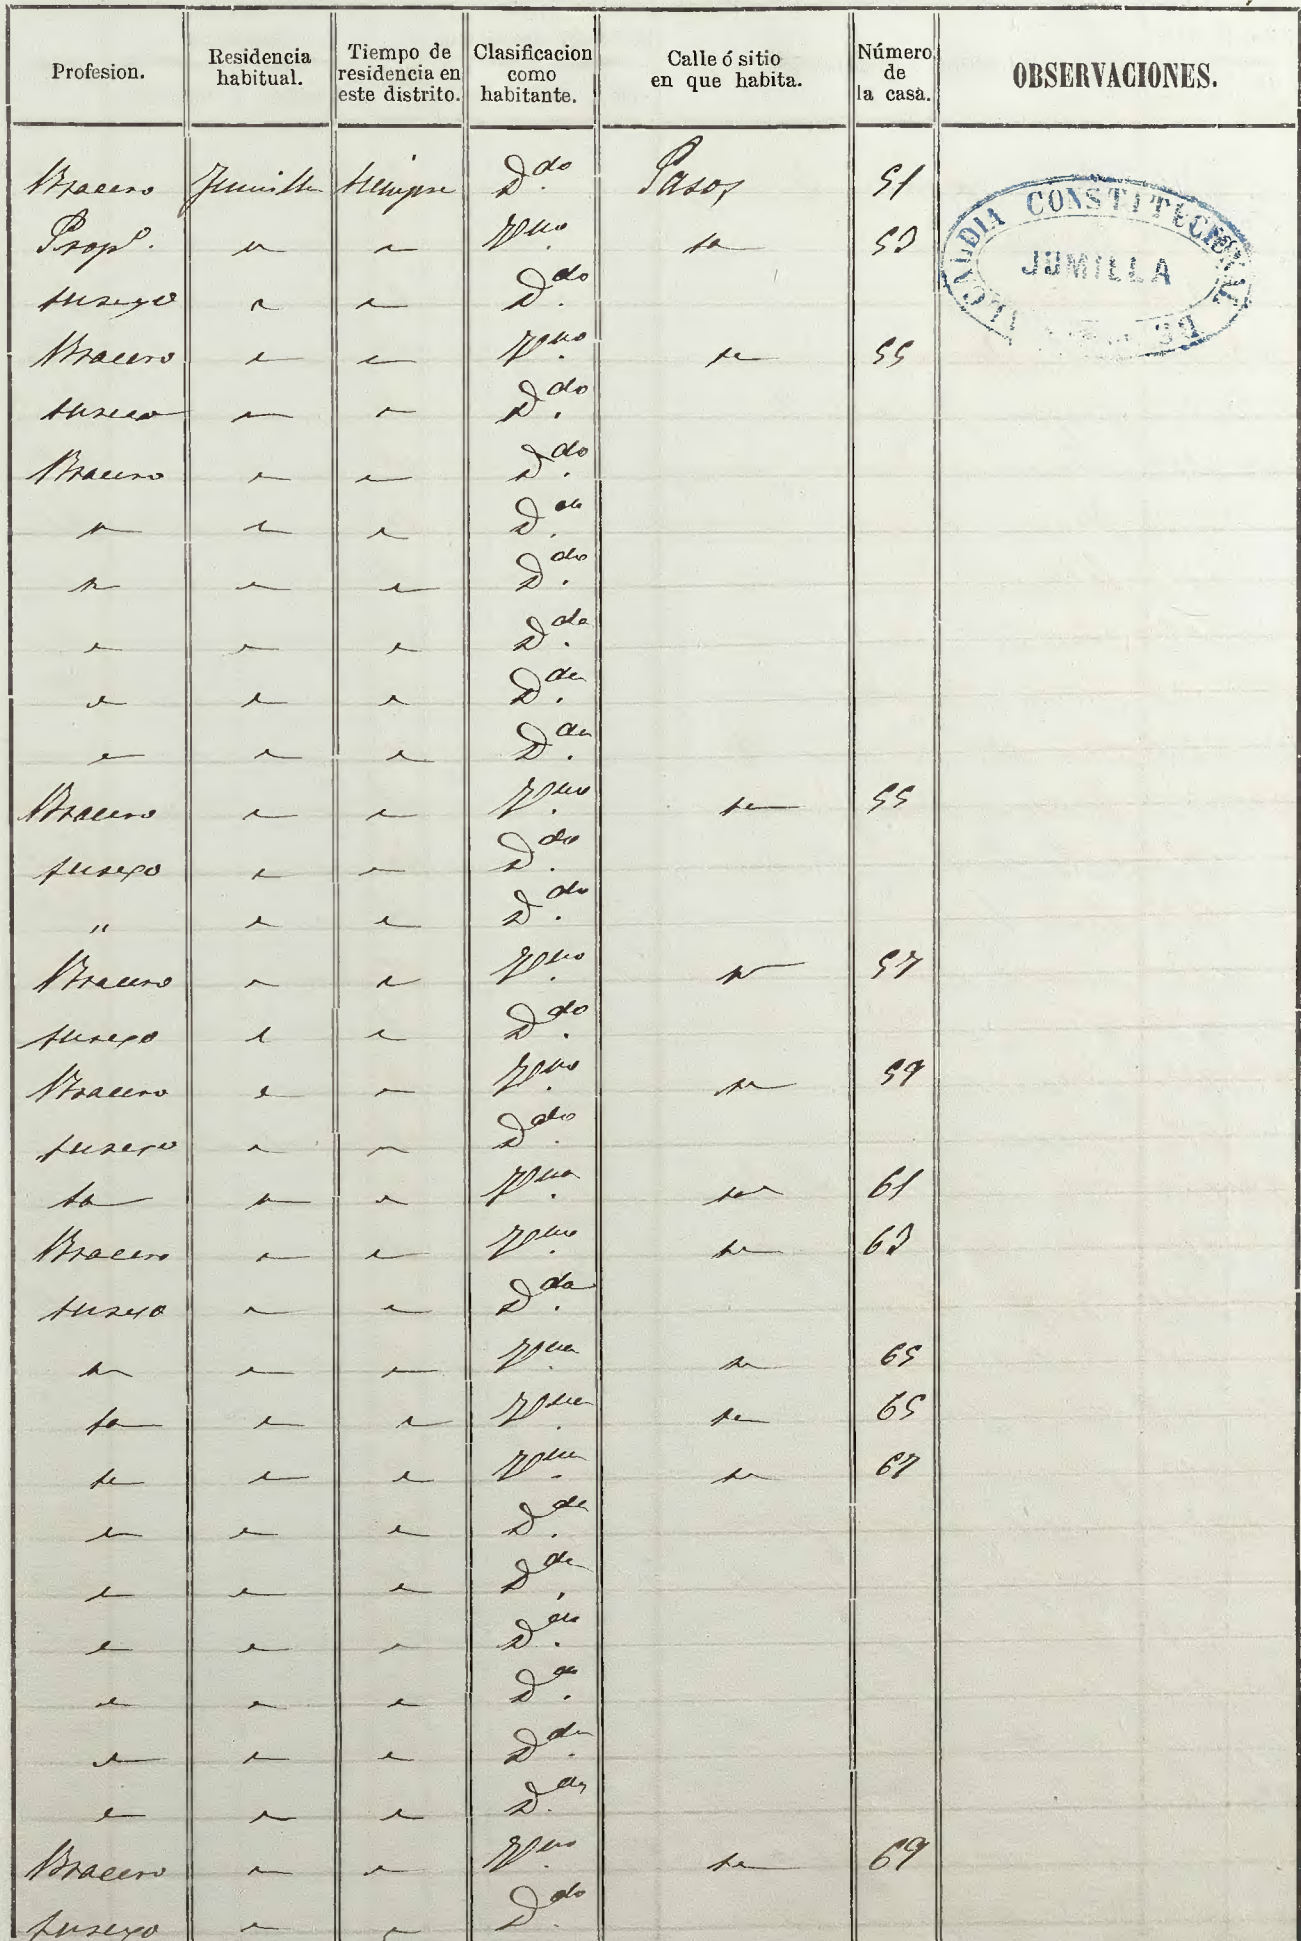 Profesion. Residencia habitual. Tiempo de residencia en este distrito. Clasificacion como habitante. Calle ó sitio en que habita. Número de la casa. OBSERVACIONES.
Bracero Jumilla siempre D.do Pasos 51
Prop.o " " V.no " 53
su sexo " " D.do
Bracero " " V.no " 55
su sexo " " D.do
Bracero " " D.do
" " " D.do
" " " D.do
" " " D.do
" " " D.do
" " " D.do
Bracero " " V.no " 55
su sexo " " D.do
" " " D.do
Bracero " " V.no " 57
su sexo " " D.do
Bracero " " V.no " 59
su sexo " " D.do
" " " V.na " 61
Bracero " " V.no " 63
su sexo " " D.da
" " " V.na " 65
" " " V.na " 65
" " " V.na " 67
" " " D.do
" " " D.do
" " " D.do
" " " D.do
" " " D.do
" " " D.do
Bracero " " V.no " 69
su sexo " " D.do
ALCALDIA CONSTITUCIONAL DE
JUMILLA